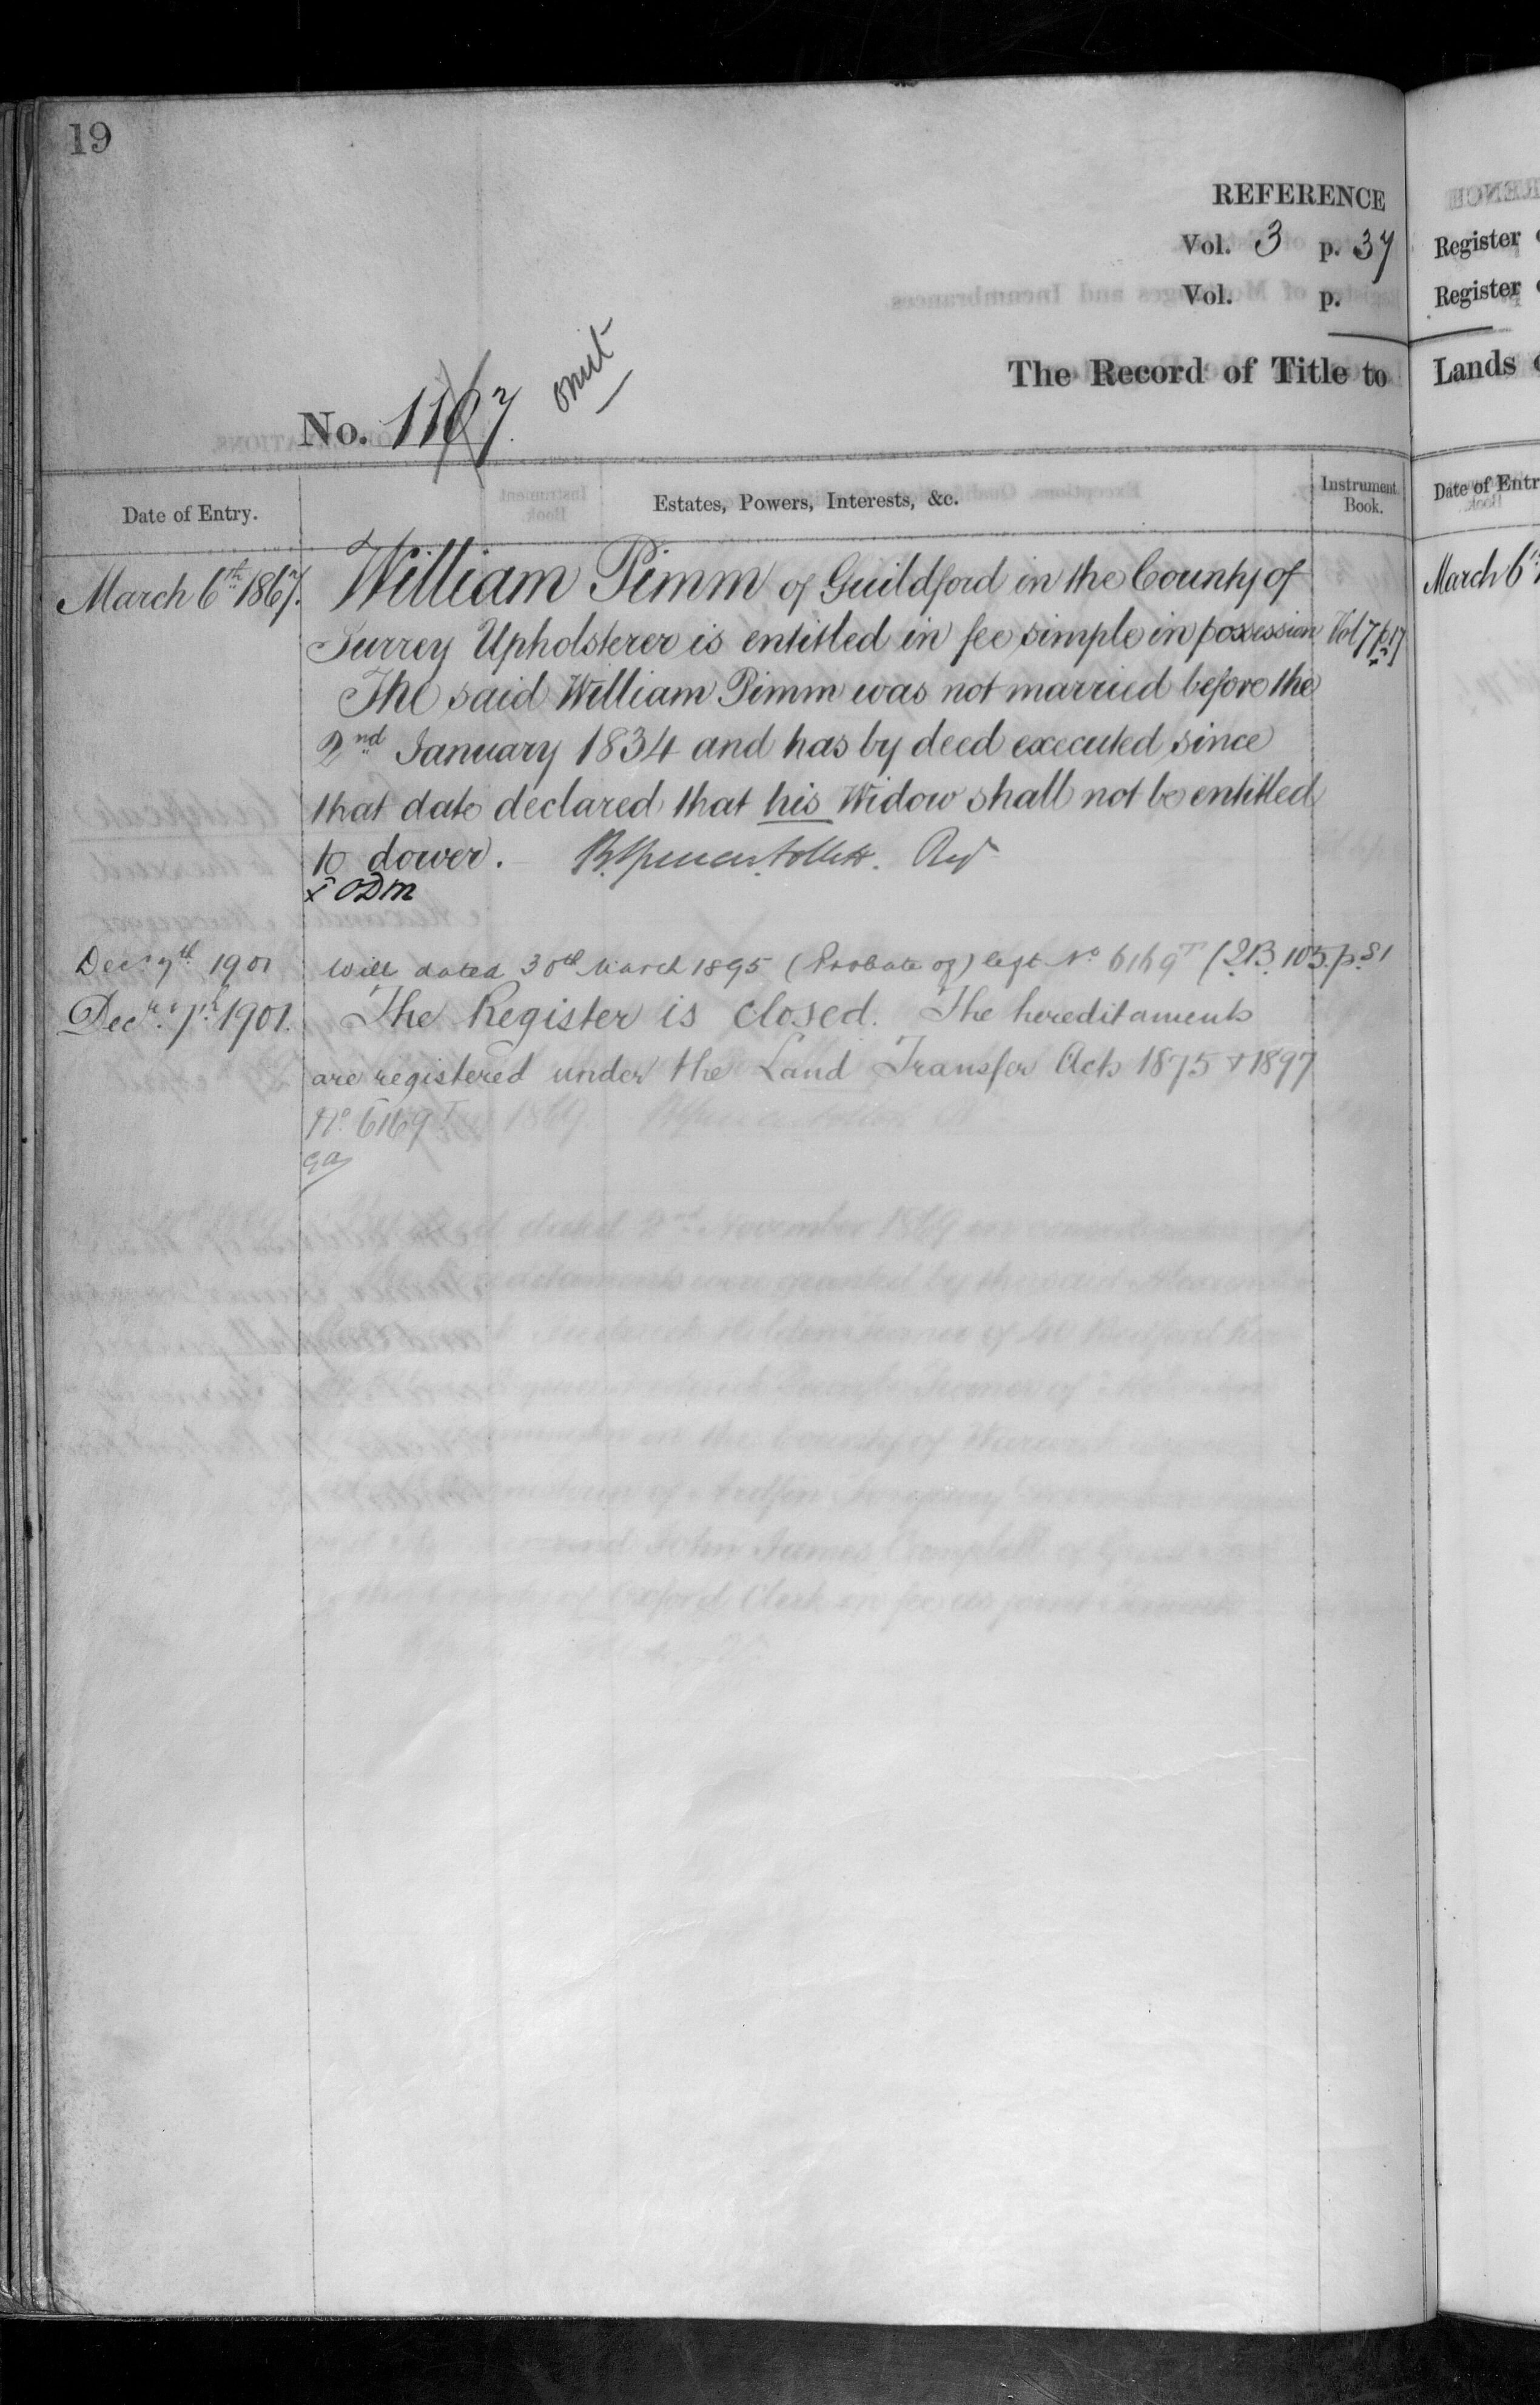 19
REFERENCE
Vol. 3 p. 37
Vol. p.
The Record of Title to
No. 1167 omit
Date of Entry. Estates, Powers, Interests, &c. Instrument Book.
March 6th 1867. William Pimm of Guildford in the County of
Surrey Upholsterer is entitled in fee simple in possession Vol 7 p 17
The said William Pimm was not married before the
2nd January 1834 and has by deed executed since
that date declared that his Widow shall not be entitled
to dower. B Spencer Follett. Regr
x ODM
Decr 7th 1901 Will dated 30th March 1895 (Probate of) left No 6169T (2B. 105. p. 81
Decr. 7th. 1901. The Register is closed. The hereditaments
are registered under the Land Transfer Acts 1875 & 1897
No 6169T
Register
Register
Lands
Date of Entr
March 6th